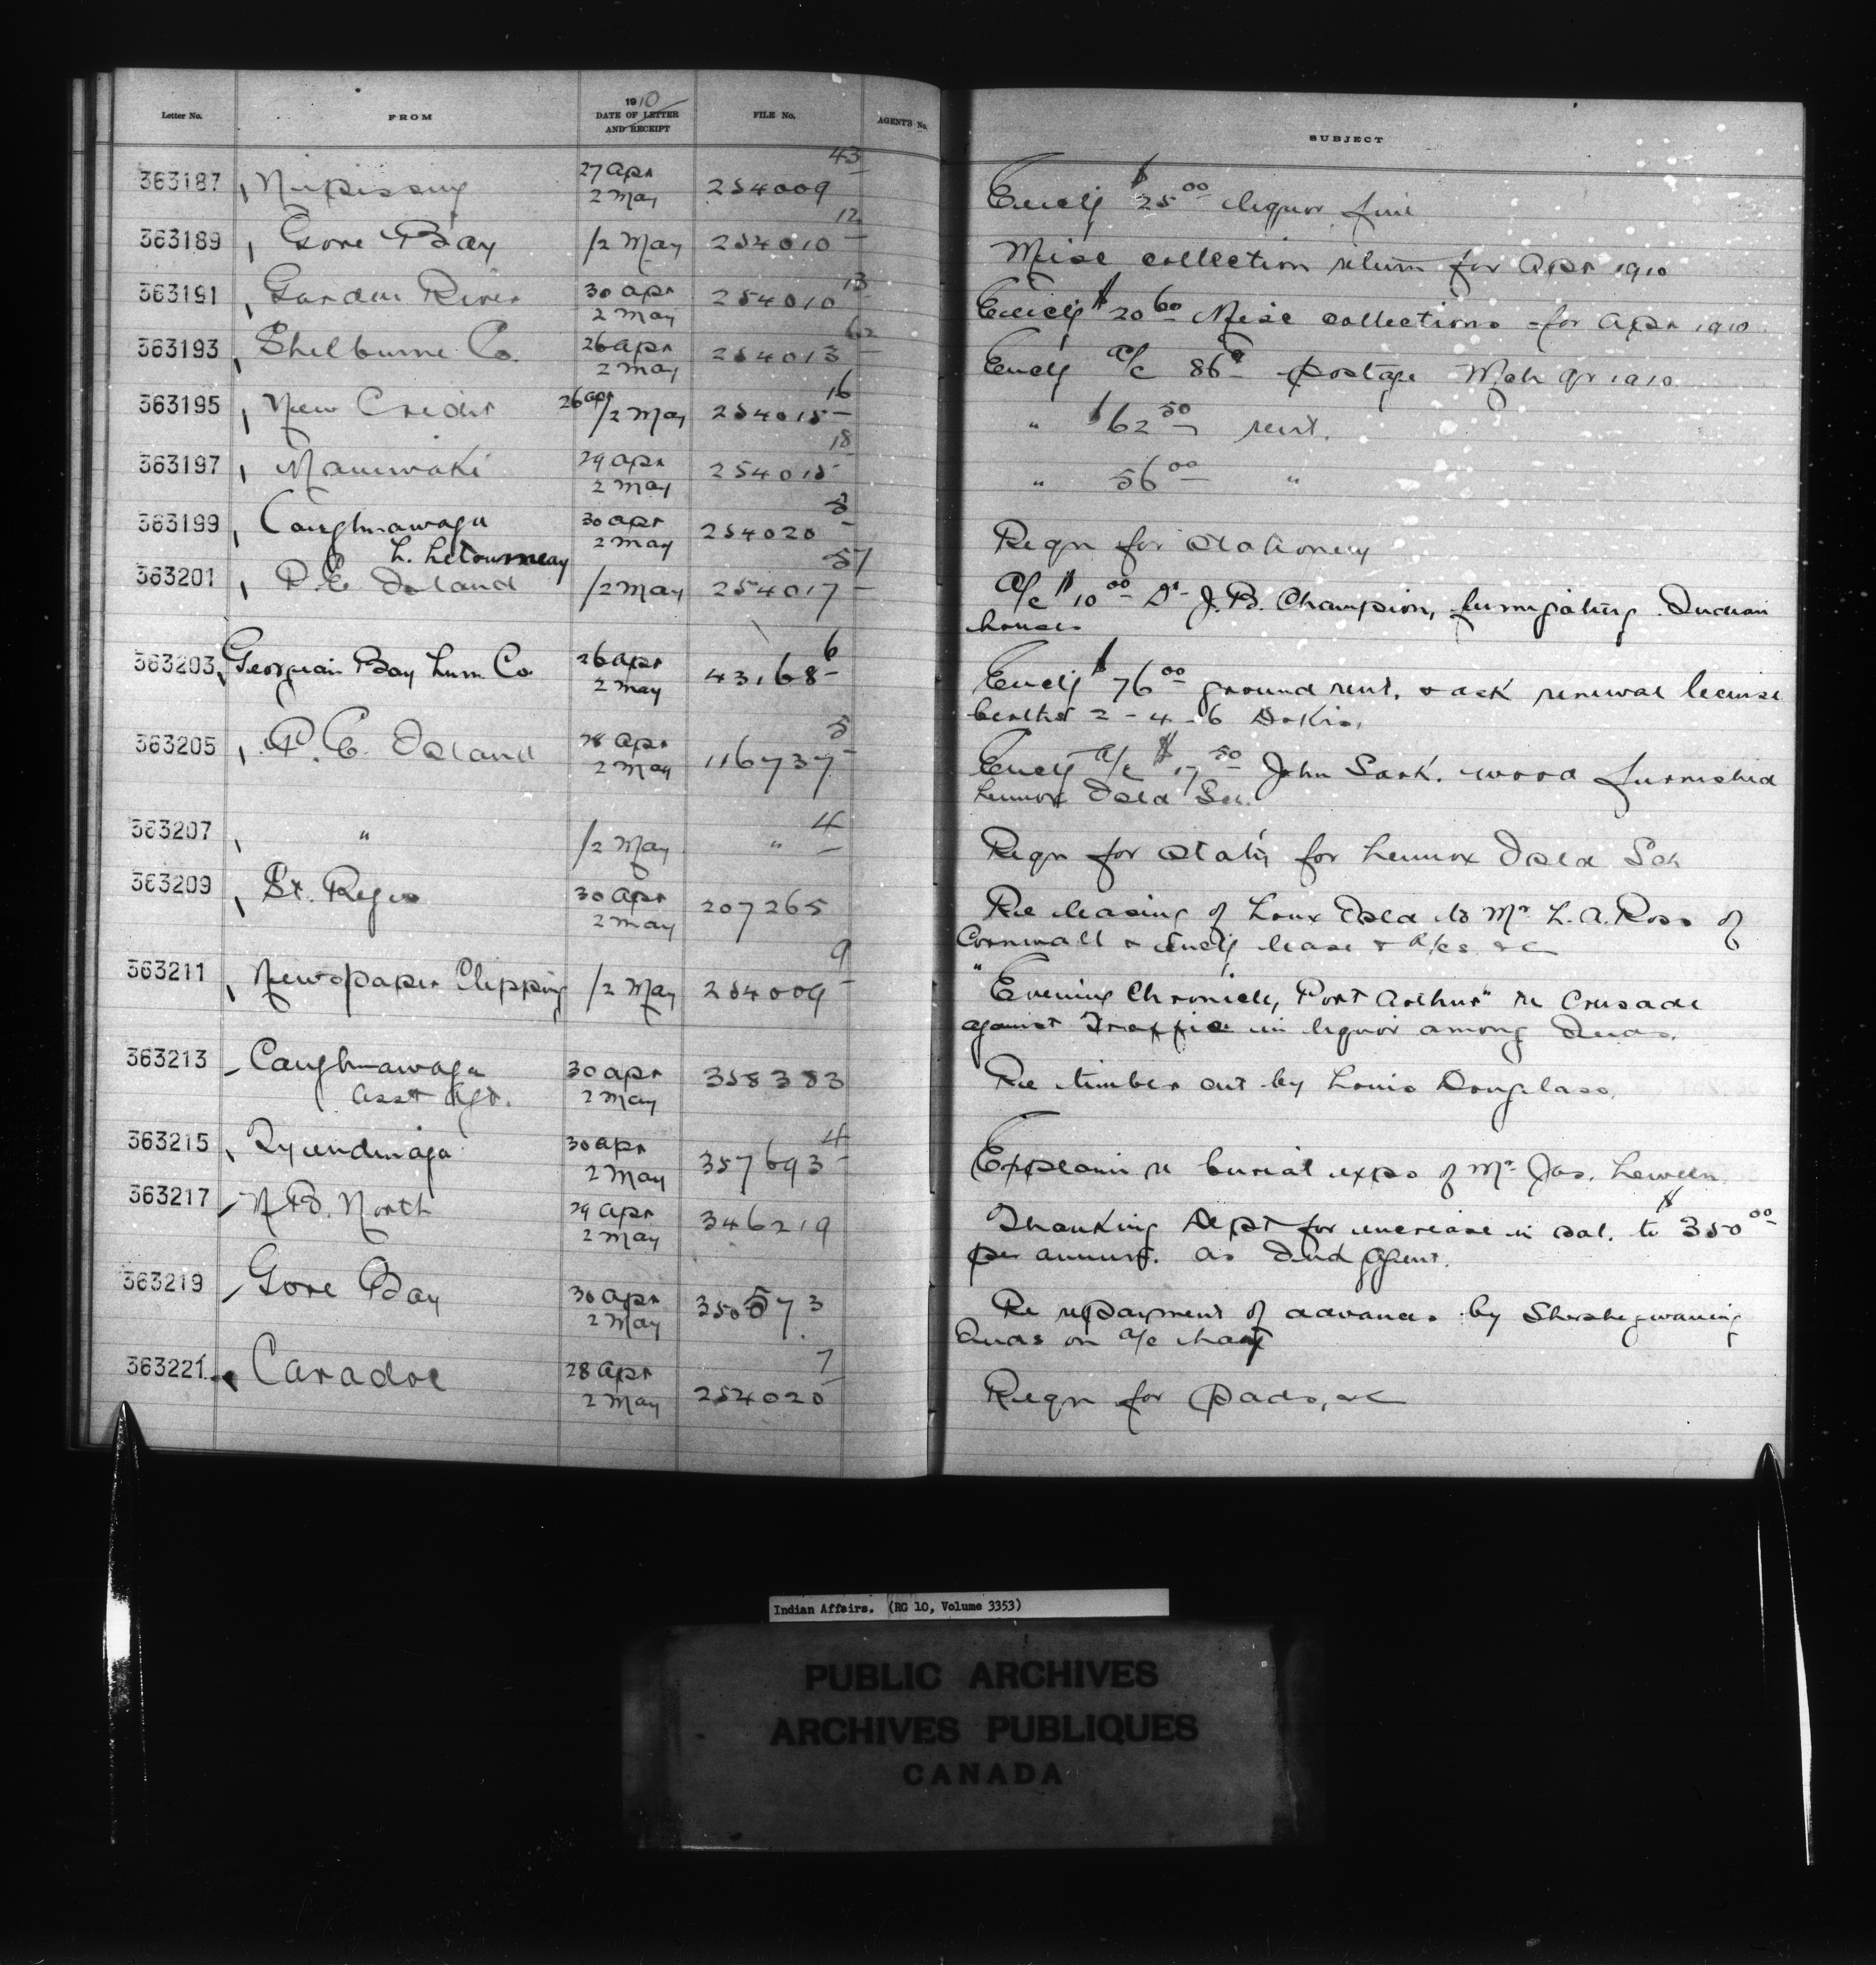 Letter No. FROM 1910 DATE OF LETTER AND RECEIPT FILE No. AGENT'S No. SUBJECT
363187 Nipissing 27 Apr 2 May 254009 43 Encly $25 00 liquor fine
363189 Gore Bay /2 May 254010 12 Misc collection return for Apr 1910
363191 Garden River 30 Apr 2 May 254010 13 Encly $20 60 Misc collections for Apr 1910
363193 Shelburne Co. 26 Apr 2 May 254013 62 Encly a/c 86c postage Mch qr 1910
363195 New Credit 26 apr /2 May 254015 16 " $62 50 rent.
363197 Maniwaki 29 Apr 2 May 254015 18 " 56 00 "
363199 Caughnawaga 30 Apr 2 May 254020 5 Reqn for stationery
L. Letourneay
363201 P.E. Island /2 May 254017 57 a/c $10 00 Dr J.B. Champion, fumigating Indian
houses
363203 Georgian Bay Lum. Co 26 Apr 2 May 43168 6 Encly $76 00 ground rent, & ask renewal license
berths 2-4-6 Dokis.
363205 P.E. Island 28 Apr 2 May 116737 5 Encly a/c $17 50 John Sark. wood furnished
Lennox Isld Sch.
363207 " /2 May " 4 Reqn for staty for Lennox Isld Sch
363209 St. Regis 30 Apr 2 May 207265 Re leasing of Loux Isld to Mr L.A. Ross of
Cornwall & encly lease & a/cs &c
363211 Newspaper Clipping /2 May 254009 9 "Evening Chronicle, Port Arthur" re Crusade
against Traffic in liquor among Inds.
363213 Caughnawaga 30 Apr 2 May 358383 Re timber cut by Louis Douglass.
Asst Agt.
363215 Tyendinaga 30 Apr 2 May 357693 4 Explain re burial exps of Mr Jas. Lewen
363217 N.B. North 29 Apr 2 May 346219 Thanking Dept for increase in sal. to $350 00
per annum. as Ind Agent.
363219 Gore Bay 30 Apr 2 May 350573 Re repayment of advances by Sheshegwaning
Inds on a/c
363221 Caradoc 28 Apr 2 May 254020 7 Reqn for pads, &c
Indian Affairs. (RG 10, Volume 3353)
PUBLIC ARCHIVES
ARCHIVES PUBLIQUES
CANADA